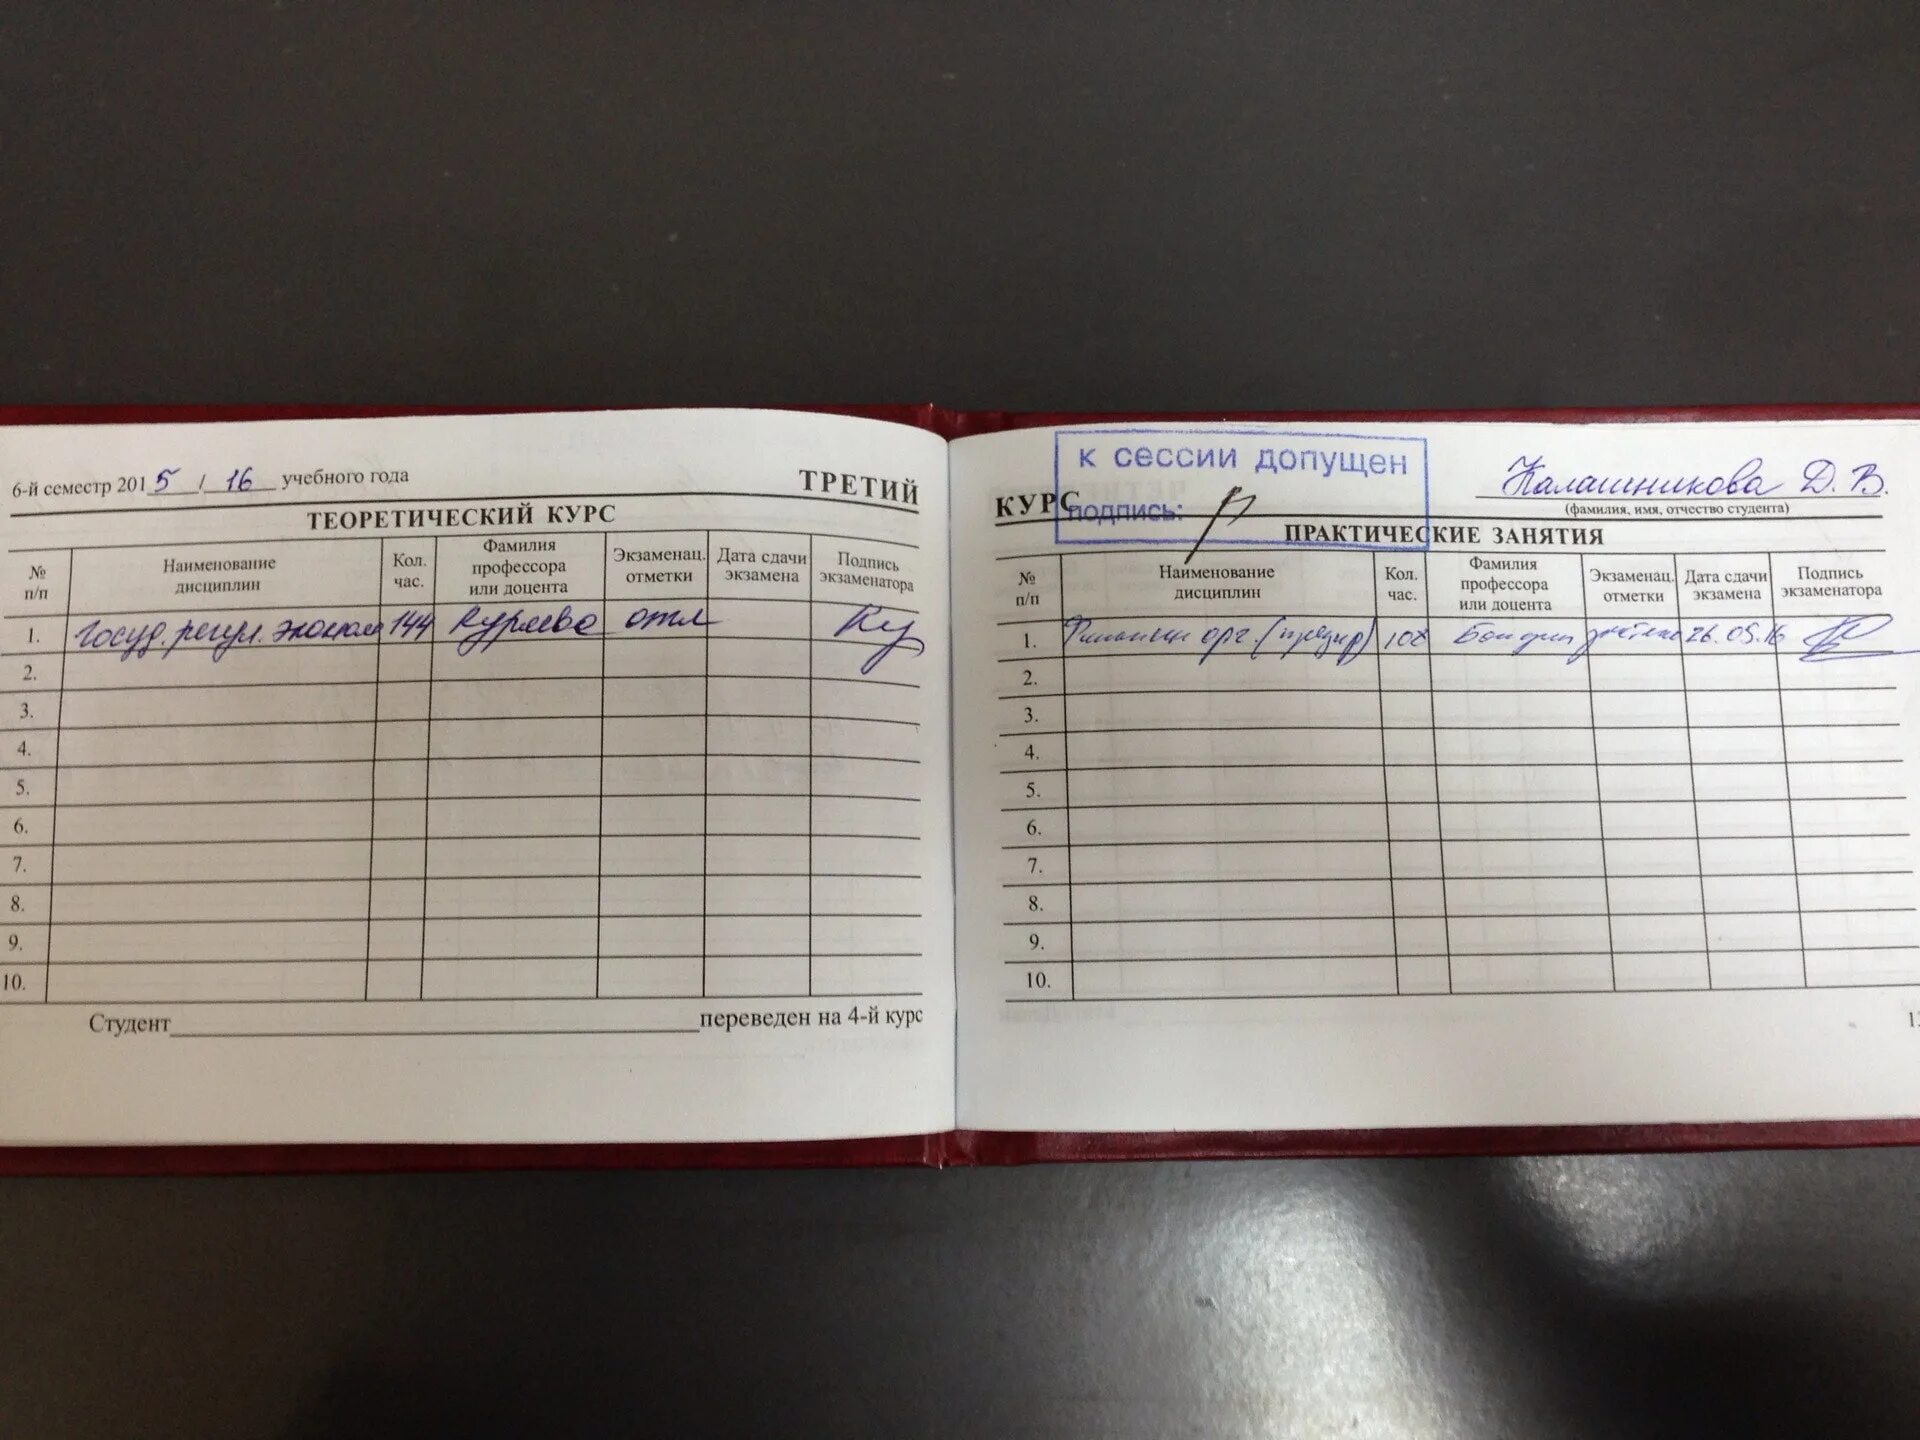 6-й семестр 2015/16 учебного года
ТРЕТИЙ
ТЕОРЕТИЧЕСКИЙ КУРС
№ п/п Наименование дисциплин Кол. час. Фамилия профессора или доцента Экзаменац. отметки Дата сдачи экзамена Подпись экзаменатора
1. Госуд. регул. эконом 144 Куряева отл Ку
2.
3.
4.
5.
6.
7.
8.
9.
10.
Студент переведен на 4-й курс
к сессии допущен
подпись:
КУРС
Калашникова Д. В.
(фамилия, имя, отчество студента)
ПРАКТИЧЕСКИЕ ЗАНЯТИЯ
№ п/п Наименование дисциплин Кол. час. Фамилия профессора или доцента Экзаменац. отметки Дата сдачи экзамена Подпись экзаменатора
1. орг. 108 зачтено 26.05.16
2.
3.
4.
5.
6.
7.
8.
9.
10.